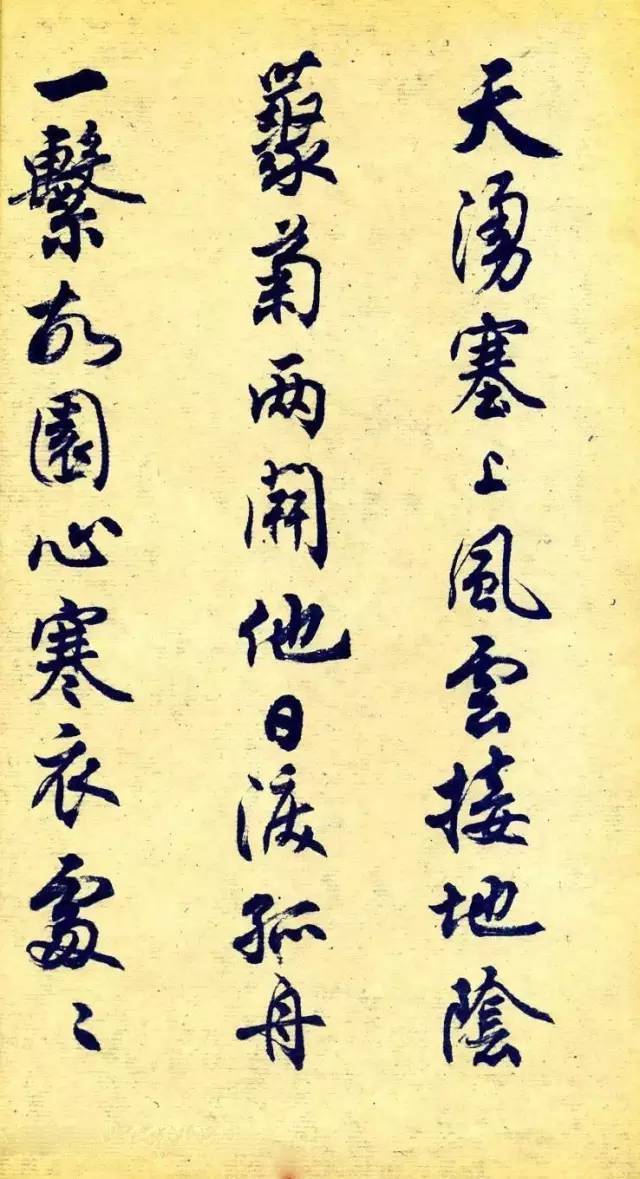 天湧塞上風雲接地陰
藂菊兩開他日淚孤舟
一繫故園心寒衣處〻